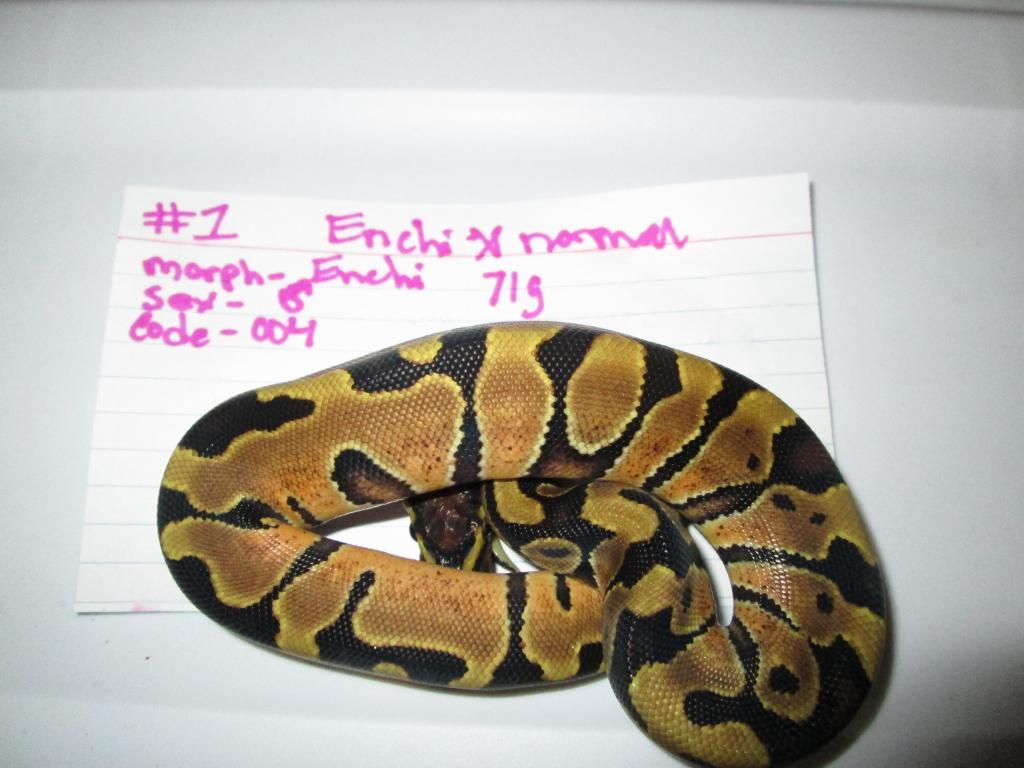 #1 Enchi x normal
morph- Enchi 71g
sex-
code - 004